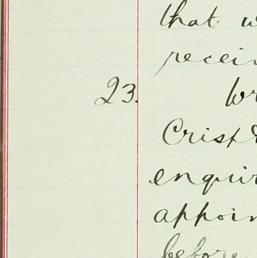 that w
recei
23. Wr
Crisp &
enquir
appoin
before